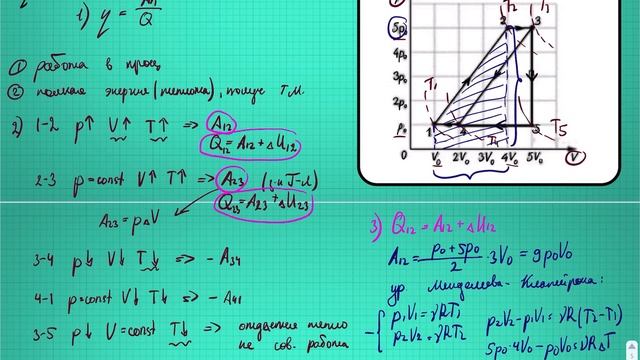 1) η = A₁₁ / Q
① работа в проц
② полная энергия (теплота), получ Т.М.
2) 1-2 p↑ V↑ T↑ => A₁₂
Q₁₂ = A₁₂ + ΔU₁₂
2-3 p=const V↑ T↑ => A₂₃
Q₂₃ = A₂₃ + ΔU₂₃
A₂₃ = pΔV
3-4 p↓ V↓ T↓ => - A₃₄
4-1 p=const V↓ T↓ => - A₄₁
3-5 p↓ V=const T↓ => отданное тепло
не сов. работа
T₂ T₃
2 3
5p₀
4p₀
3p₀
2p₀
p₀
T₁
1 4 5
T₄ T₅
0 V₀ 2V₀ 3V₀ 4V₀ 5V₀ V
3) Q₁₂ = A₁₂ + ΔU₁₂
A₁₂ = (p₀ + 5p₀) / 2 · 3V₀ = 9p₀V₀
ур Менделеева-Клапейрона:
p₁V₁ = νRT₁
p₂V₂ = νRT₂
p₂V₂ - p₁V₁ = νR(T₂-T₁)
5p₀·4V₀ - p₀V₀ = νRΔT